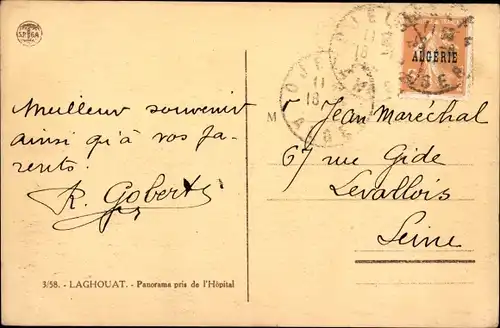 SPGA
Meilleur souvenir
ainsi qu'à vos pa-
rents.
R. Gobert
3/58. - LAGHOUAT. - Panorama pris de l'Hôpital
ALGÉRIE
M
Jean Maréchal
67 rue Gide
Levallois
Seine